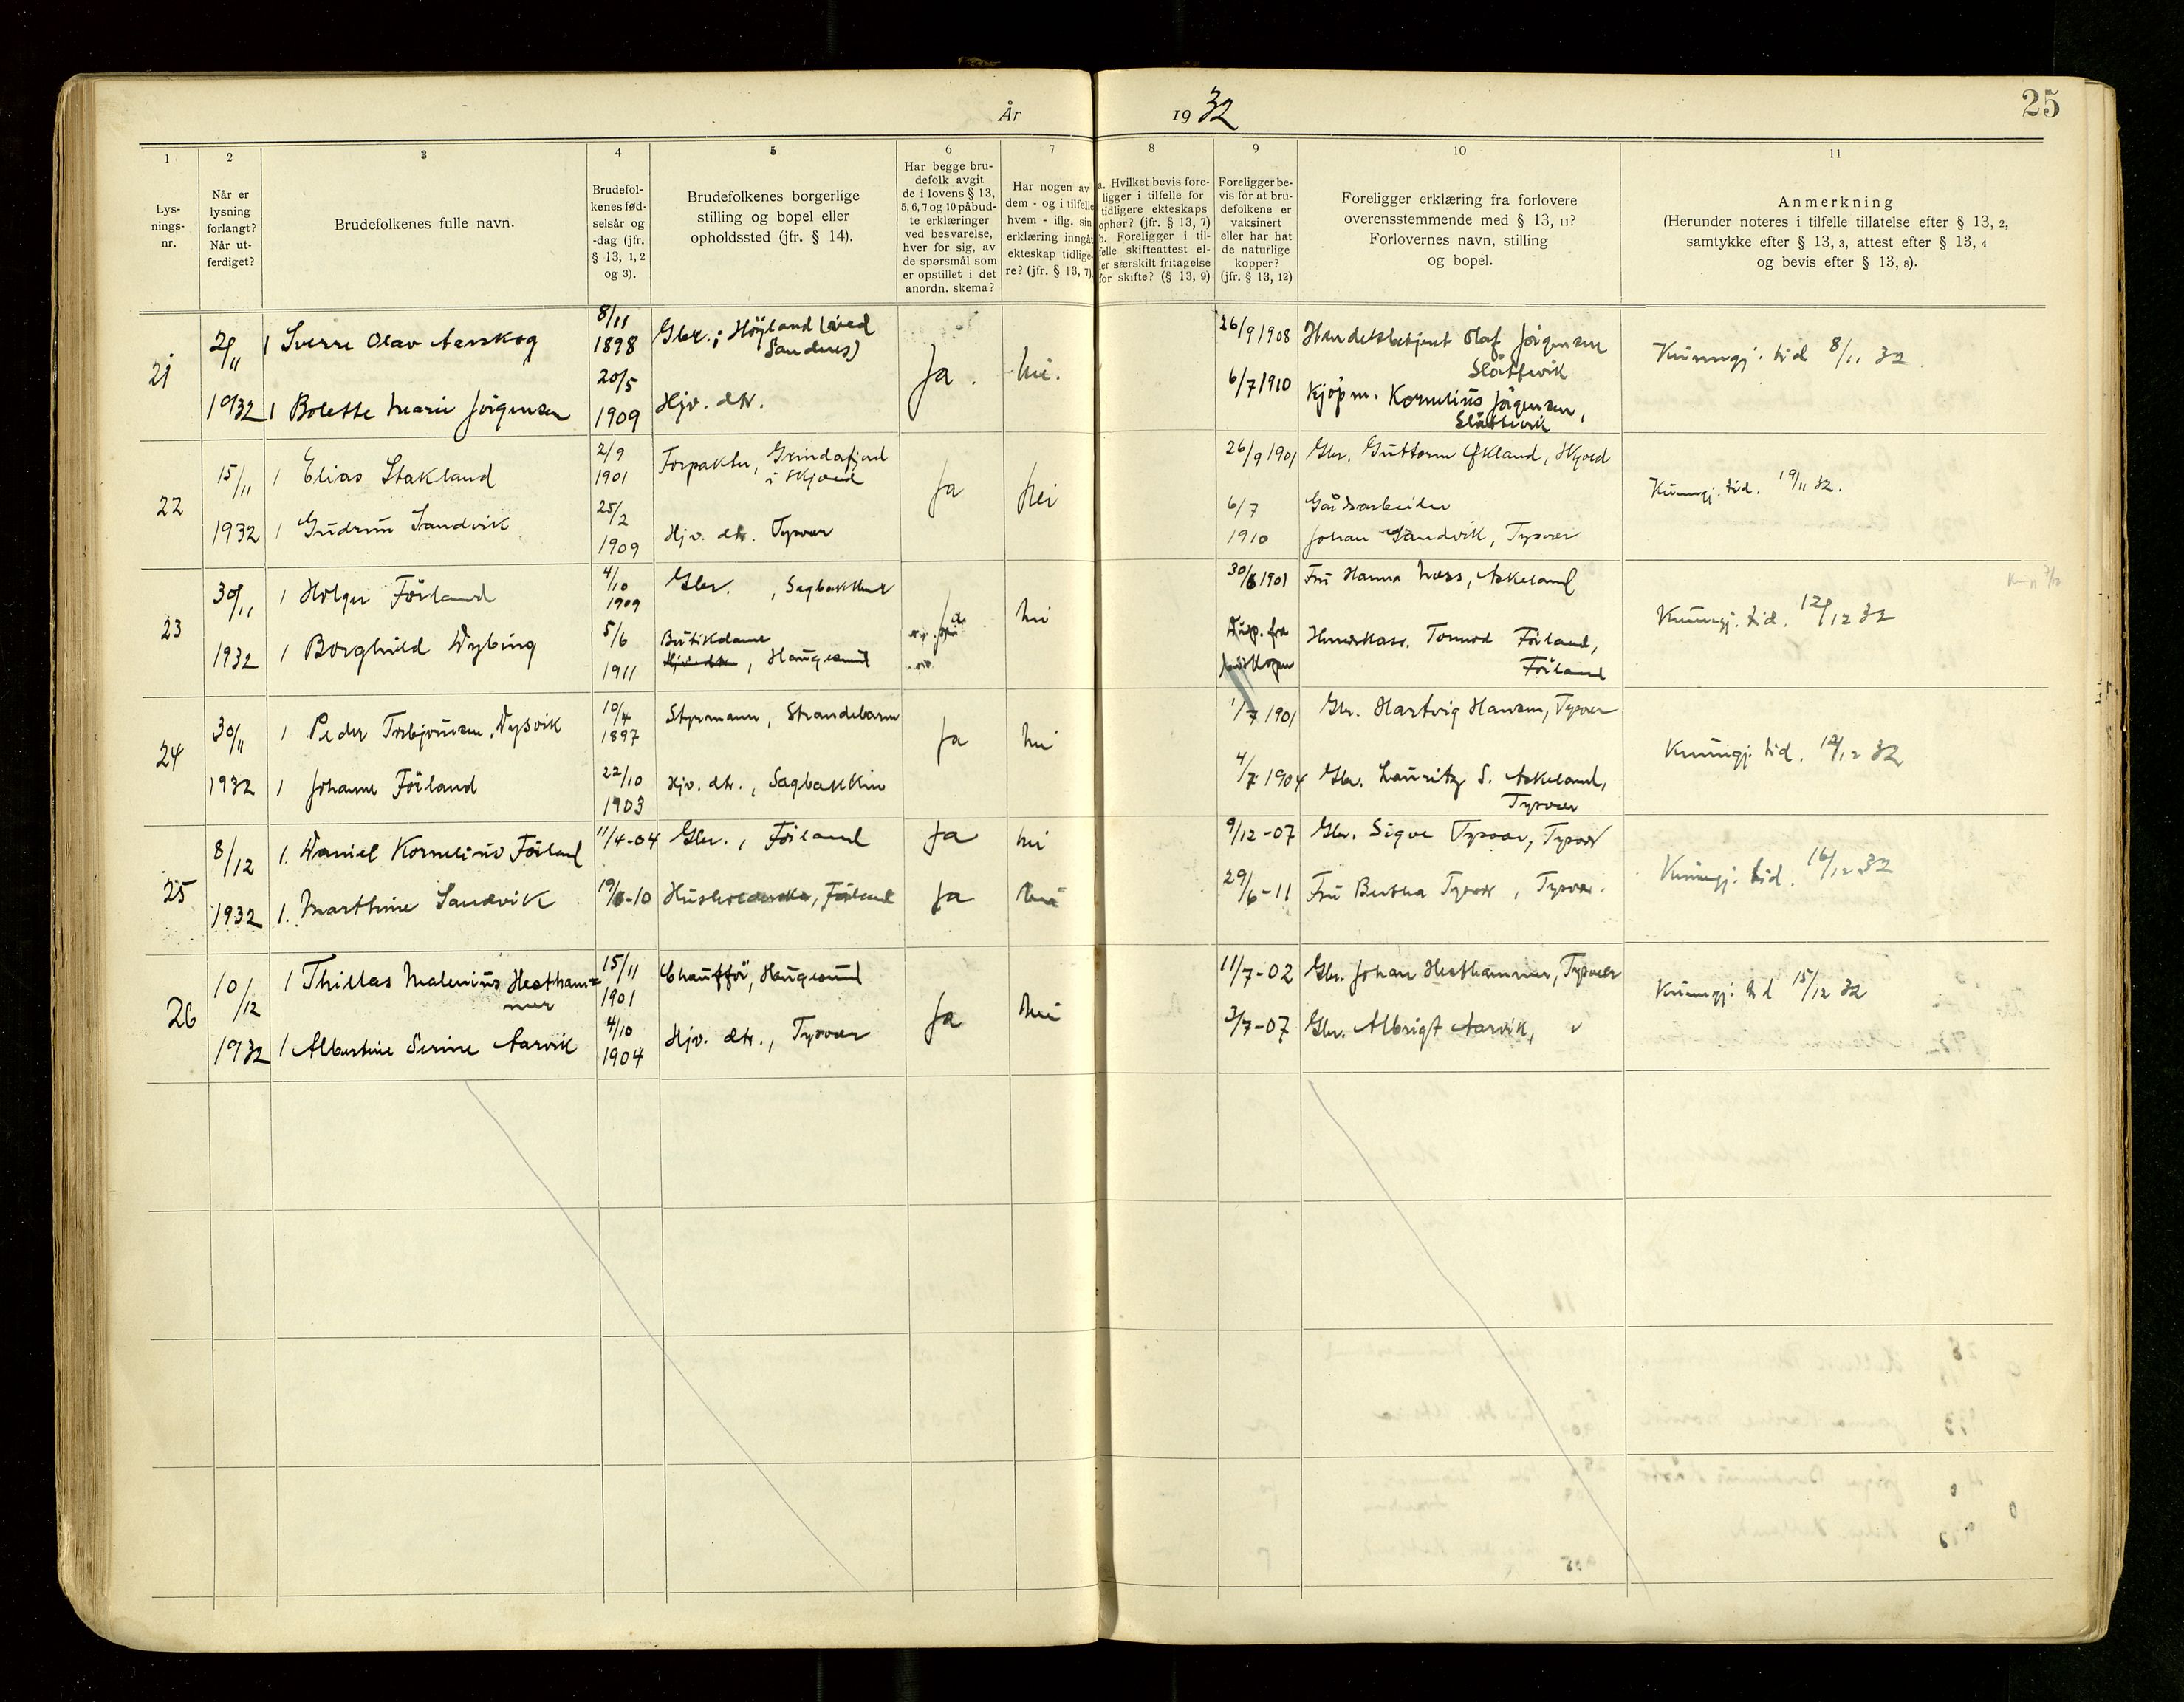 År 1932
25
1
Lys-
nings-
nr.
2
Når er
lysning
forlangt?
Når ut-
ferdiget?
3
Brudefolkenes fulle navn.
4
Brudefol-
kenes fød-
selsår og
-dag (jfr.
§ 13, 1, 2
og 3).
5
Brudefolkenes borgerlige
stilling og bopel eller
opholdssted (jfr. § 14).
6
Har begge bru-
defolk avgit
de i lovens § 13,
5, 6, 7 og 10 påbud-
te erklæringer
ved besvarelse,
hver for sig, av
de spørsmål som
er opstillet i det
anordn. skema?
7
Har nogen av
dem - og i tilfelle
hvem - iflg. sin
erklæring inngåt
ekteskap tidlige-
re? (jfr. § 13, 7)
8
a. Hvilket bevis fore-
ligger i tilfelle for
tidligere ekteskaps
ophør? (jfr. § 13, 7)
b. Foreligger i til-
felle skifteattest el-
ler særskilt fritagelse
for skifte? (§ 13, 9)
9
Foreligger be-
vis for at bru-
defolkene er
vaksinert
eller har hat
de naturlige
kopper?
(jfr. § 13, 12)
10
Foreligger erklæring fra forlovere
overensstemmende med § 13, 11?
Forlovernes navn, stilling
og bopel.
11
Anmerkning
(Herunder noteres i tilfelle tillatelse efter § 13, 2,
samtykke efter § 13, 3, attest efter § 13, 4
og bevis efter § 13, 8).
21
2/11
1932
1 Sverre Olav Aarskog
1 Bolette Marie Jørgensen
8/11
1898
20/5
1909
Gbr., Höyland (ved
Sandnes)
Hjv. dtr.
Ja.
Nei.
26/9 1908
6/7 1910
Handelsbetjent Olaf Jörgensen
Slåttevik
Kjöpm. Kornelius Jörgensen,
Slåttevik
Kunngj. tid 8/11 32
22
15/11
1932
1 Elias Stakland
1 Gudrun Sandvik
2/9
1901
25/2
1909
Forpakter, Grindafjord
i Skjold
Hjv. dtr. Tysvær
Ja
Nei
26/9 1901
6/7
1910
Gbr. Guttorm Økland, Skjold
Gårdsarbeider
Johan Sandvik, Tysvær
Kunngj. tid. 19/11 32.
23
30/11
1932
1 Holger Förland
1 Borghild Dybing
4/10
1909
5/6
1911
Gbr. , Sagbakken
Butikdame
Hjv. dtr. , Haugesund
Nei
30/8 1901
Disp. fra
Fru Hanna Næss, Askeland
Tormod Förland,
Förland
Kunngj. tid. 12/12 32
24
30/11
1932
1 Peder Torbjörnsen Dysvik
1 Johanne Förland
10/4
1897
22/10
1903
Styrmann, Strandebarm
Hjv. dtr., Sagbakken
Ja
Nei
1/7 1901
4/7 1904
Gbr. Hartvig Hansen, Tysvær
Gbr. Lauritz S. Askeland,
Tysvær
Kunngj. tid. 12/12 32
25
8/12
1932
1. Daniel Kornelius Förland
1. Marthine Sandvik
11/4-04
19/6-10
Gbr., Förland
Husholderske, Förland
Ja
Ja
Nei
Nei
9/12-07
29/6-11
Gbr. Sigve Tysvær, Tysvær
Fru Bertha Tysvær, Tysvær.
Kunngj. tid. 16/12 32
26
10/12
1932
1 Thillas Malenius Hestham=
mer
1 Albertine Serine Aarvik
15/11
1901
4/10
1904
Chaufför, Haugesund
Hjv. dtr., Tysvær
Ja
Nei
11/7-02
3/7-07
Gbr. Johan Hesthammer, Tysvær
Gbr. Albrigt Aarvik, "
Kunngj. tid 15/12 32